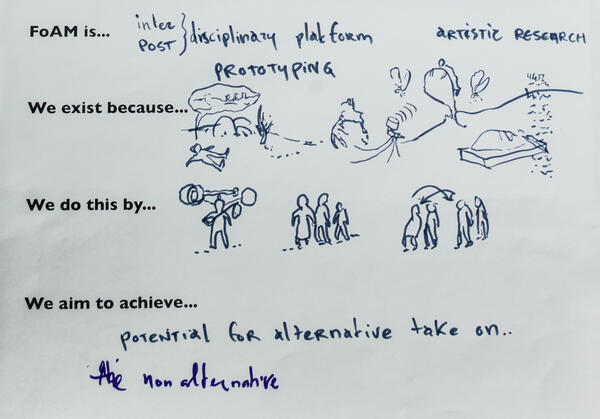 FoAM is... inter } disciplinary platform ARTISTIC RESEARCH
POST
PROTOTYPING
We exist because...
We do this by...
We aim to achieve...
POTENTIAL FOR alternative take on..
the non alternative